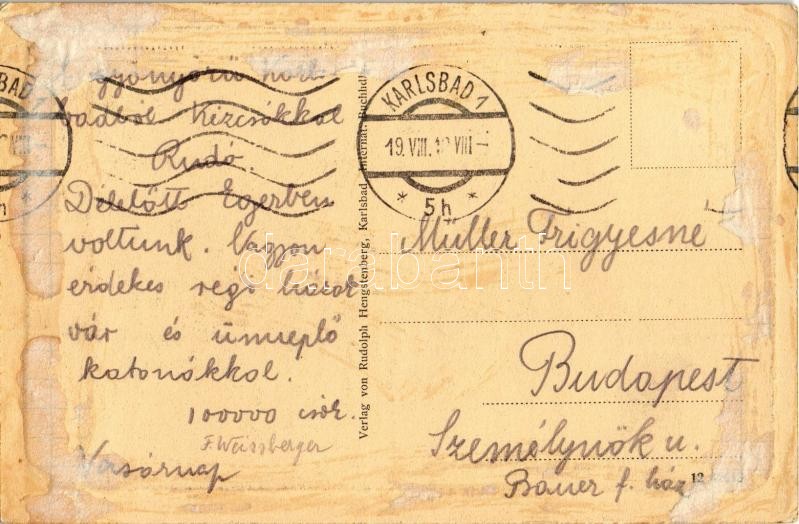 gyönyörű
kézcsókkal
Rudó
Délelőtt Egerben
voltunk. Nagyon
érdekes régi házak
vár és ünneplő
katonákkal.
100000 csók.
F. Weissberger
Vasárnap
Verlag von Rudolph Hengstenberg, Karlsbad, Internat. Buchhdl.
KARLSBAD 1
19. VIII. 1 VIII
* 5h *
BAD
VIII
h *
Müller Frigyesné
Budapest
Személynök u.
Bauer f. ház
12
darabanth